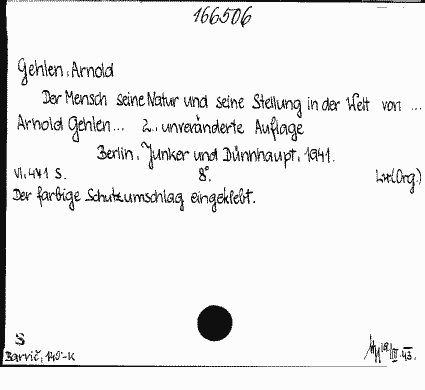 166506
Gehlen, Arnold
Der Mensch seine Natur und seine Stellung in der Welt von ...
Arnold Gehlen ... 2., unveränderte Auflage
Berlin, Junker und Dünnhaupt, 1941.
VI, 471 S. 8°. Lw(Org.)
Der farbige Schutzumschlag eingeklebt.
S
Barvič, 140‘-K